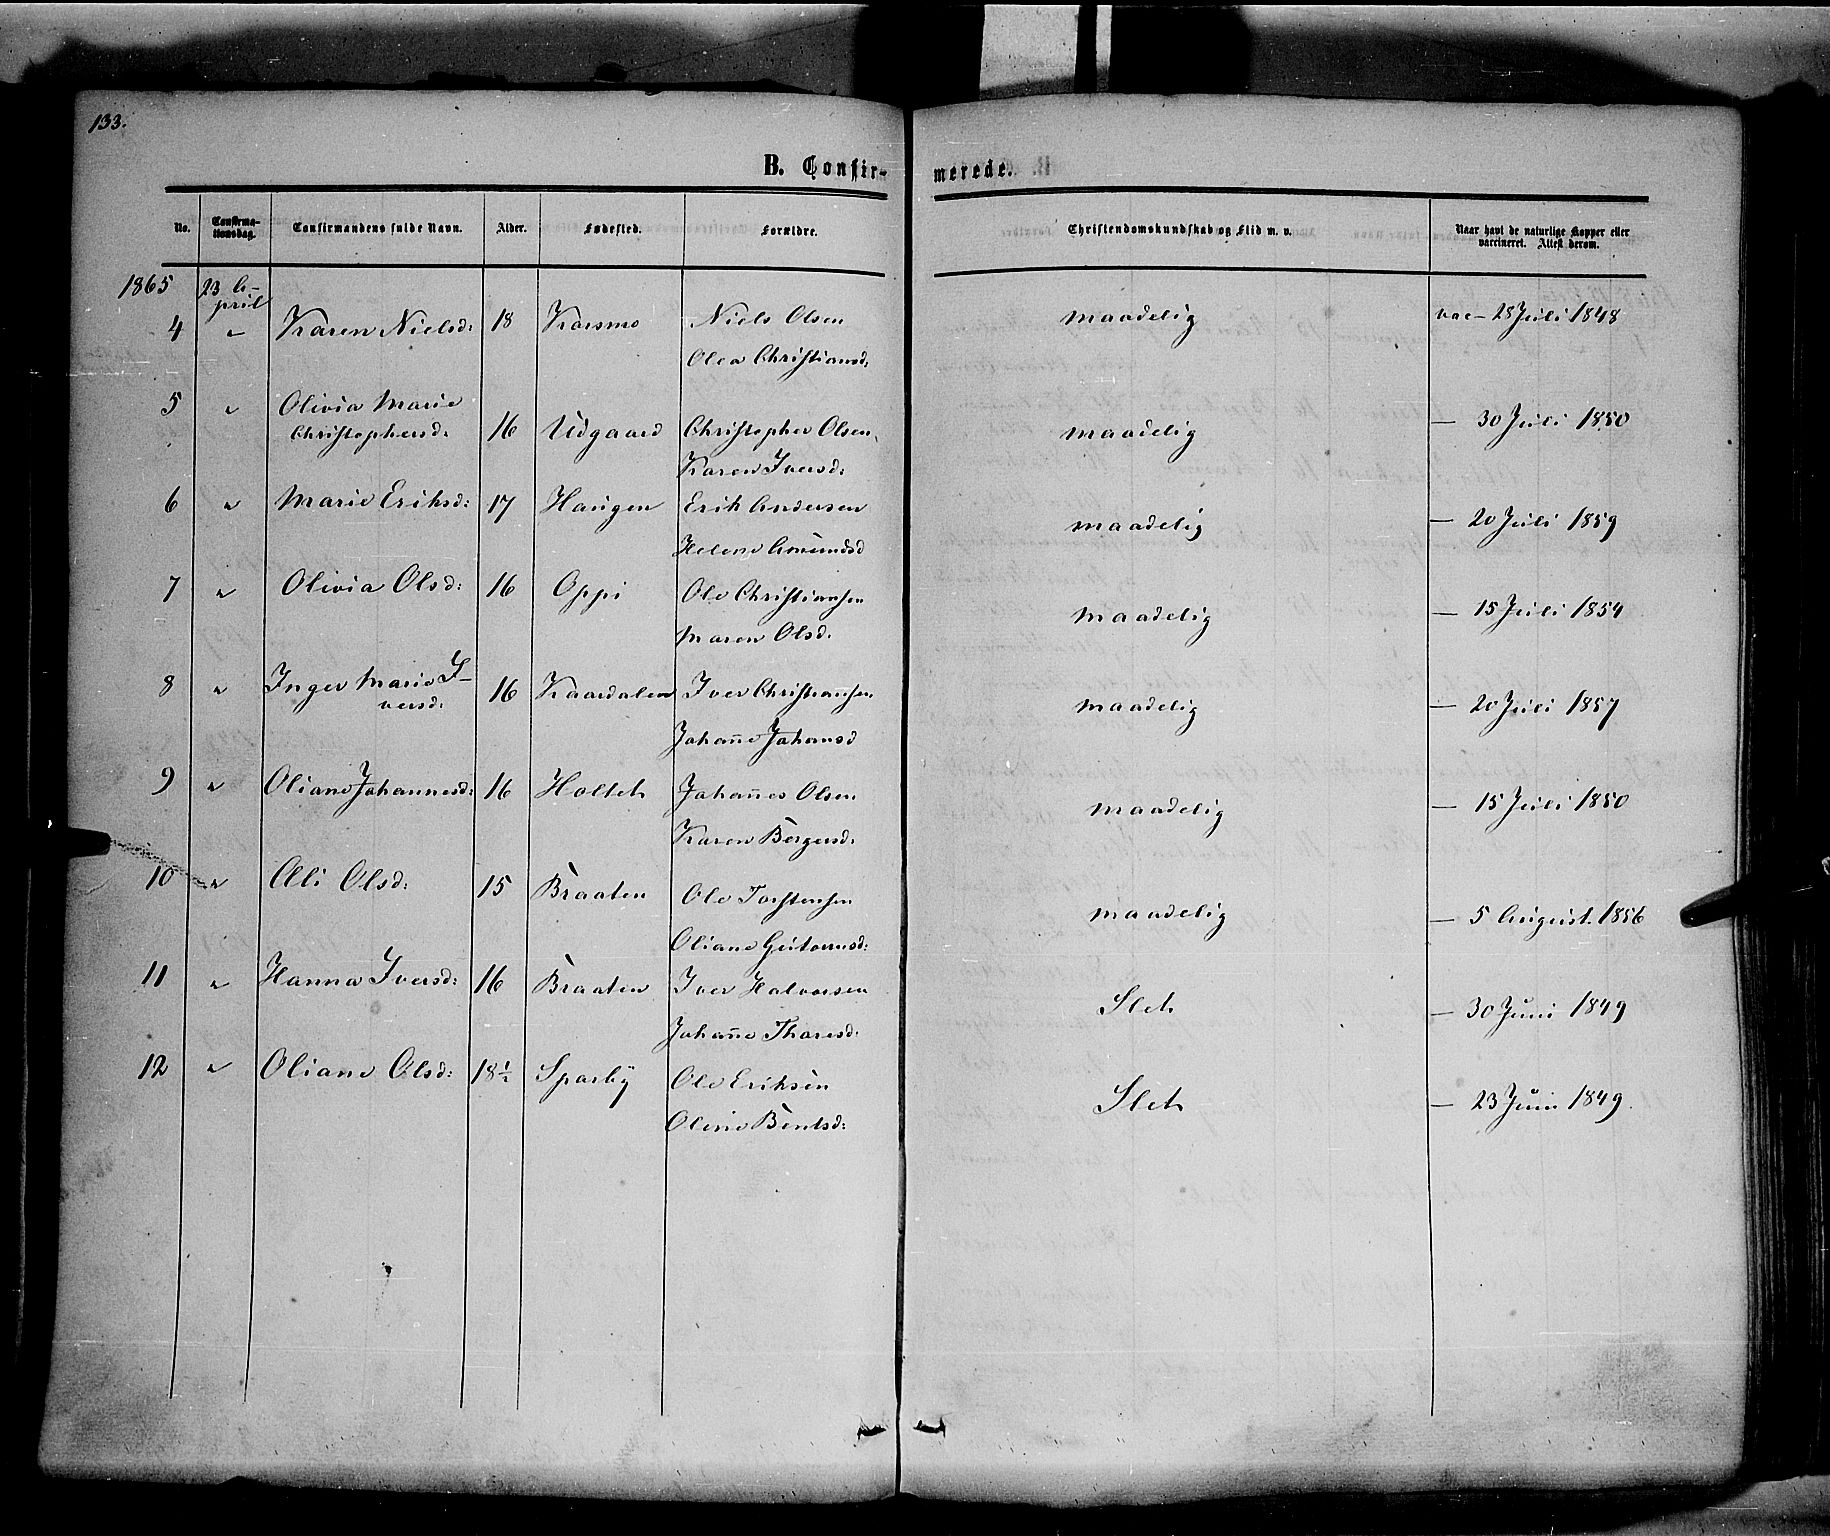 133.
B. Confir-
merede.
No.
Confirma-
tionsdag.
Confirmandens fulde Navn.
Alder.
Fødested.
Forældre.
Christendomskundskab og Flid m. v.
Naar havt de naturlige Kopper eller
vaccineret. Attest derom.
1865 23 A-
pril
4 " Karen Nielsd: 18 Korsmo Niels Olsen maadelig vac- 28 Juli 1848
Olea Christiansd:
5 " Olivia Marie
Christophersd: 16 Udgaard Christopher Olsen maadelig — 30 Juli 1850
Karen Iversd:
6 " Marie Eriksd: 17 Haugen Erik Andersen maadelig — 20 Juli 1859
Helene Amundsd
7 " Olivia Olsd: 16 Oppi Ole Christiansen maadelig — 15 Juli 1854
Maren Olsd.
8 " Inger Marie I-
versd: 16 Kaardalen Iver Christiansen maadelig — 20 Juli 1857
Johanne Johansd
9 " Oliane Johannesd: 16 Holtet Johannes Olsen maadelig — 15 Juli 1850
Karen Børgersd:
10 " Olsd: 15 Braaten Ole Torstensen maadelig — 5 August. 1856
Oliane
11 " Hanna Iversd: 16 Braaten Iver Halvorsen Slet — 30 Juni 1849
Johanne Thoresd:
12 " Oliane Olsd: 18½ Sparby Ole Eriksen Slet — 23 Juni 1849.
Oline Bentsd: